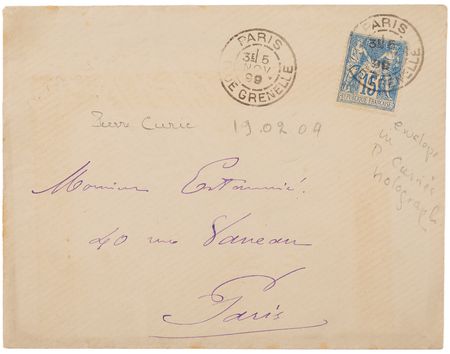 PARIS
3E/5
NOV
99
DE GRENELLE
PARIS
3E/5
99
DE GRENELLE
15
RÉPUBLIQUE FRANÇAISE
Pierre Curie 19.02.09
envelope
in
P Curie's
holograph
Monsieur Estaunié.
40 rue Vaneau
Paris